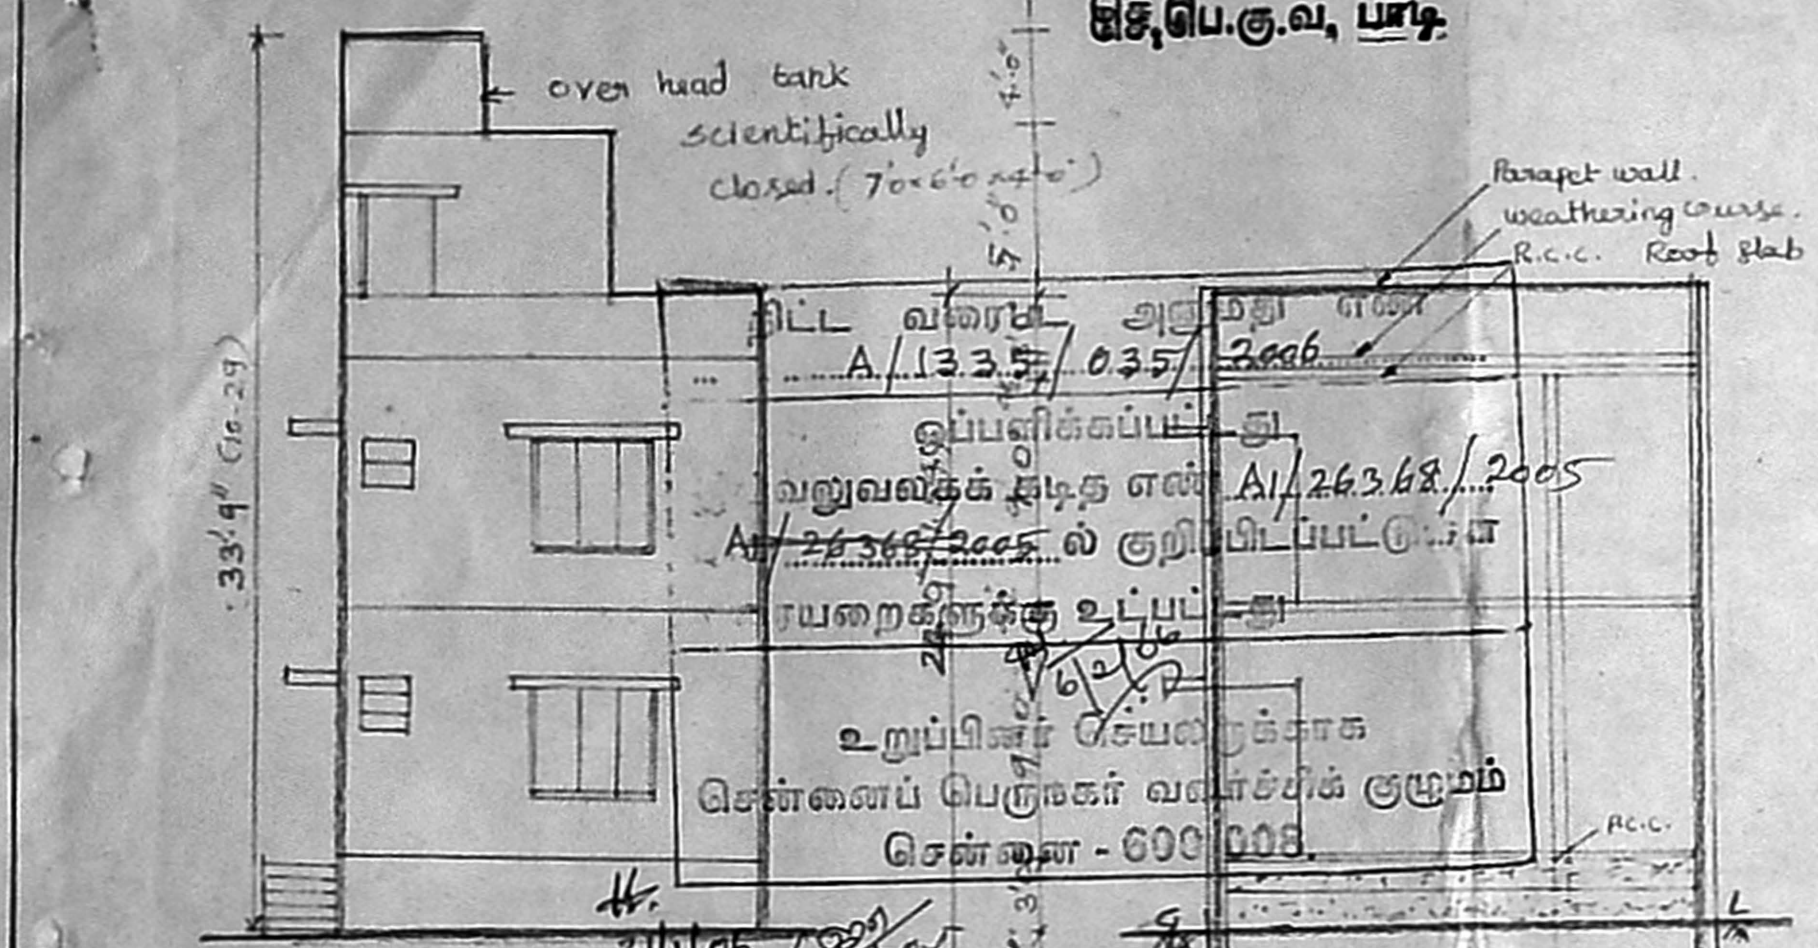 செ.பெ.கு.வ, பாடி
over head tank
scientifically
closed. (7'0×6'0×4'0")
4'.0"
5'.0"
Parapet wall.
weathering course.
R.C.C. Roof slab
திட்ட வரைபட அனுமதி எண்
A/1335/035/2006
ஒப்பளிக்கப்பட்டது
அலுவலகக் கடித எண் A1/26368/2005
A1/26368/2005 ல் குறிப்பிடப்பட்டுள்ள
வரையறைகளுக்கு உட்பட்டது
6/2/06
உறுப்பினர் செயலருக்காக
சென்னைப் பெருநகர் வளர்ச்சிக் குழுமம்
சென்னை - 600 008.
33'.9" (10.29)
R.C.C.
G
L